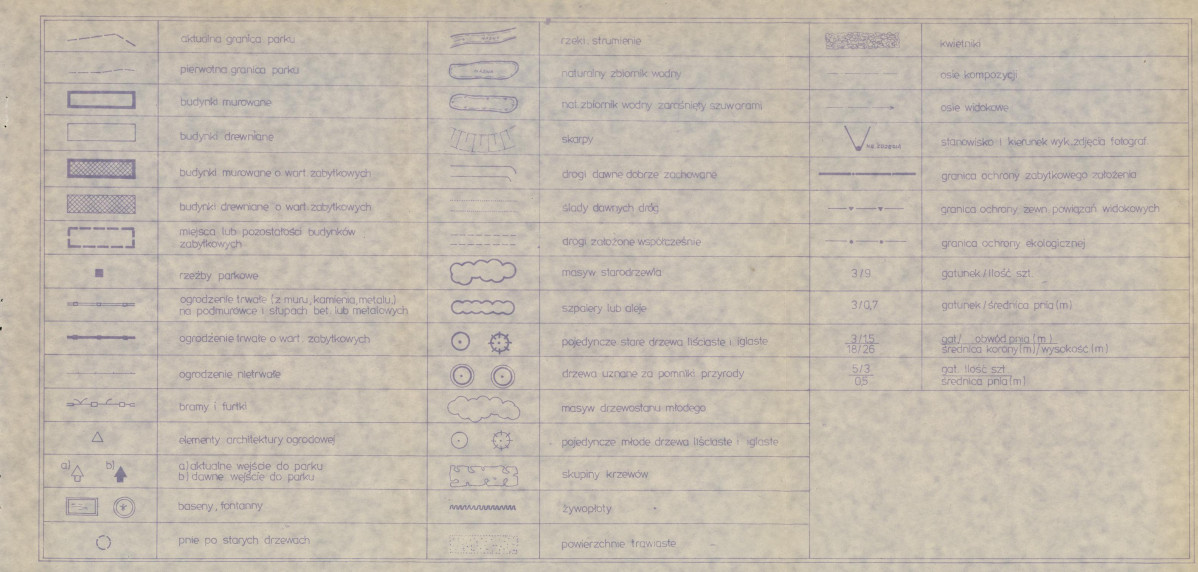 aktualna granica parku
pierwotna granica parku
budynki murowane
budynki drewniane
budynki murowane o wart. zabytkowych
budynki drewniane o wart. zabytkowych
miejsca lub pozostałości budynków
zabytkowych
rzeźby parkowe
ogrodzenie trwałe (z muru, kamienia, metalu,)
na podmurówce i słupach bet. lub metalowych
ogrodzenie trwałe o wart. zabytkowych
ogrodzenie nietrwałe
bramy i furtki
elementy architektury ogrodowej
a) b) a) aktualne wejście do parku
b) dawne wejście do parku
baseny, fontanny
pnie po starych drzewach
rzeki, strumienie
naturalny zbiornik wodny
nat. zbiornik wodny zarośnięty szuwarami
skarpy
drogi dawne dobrze zachowane
ślady dawnych dróg
drogi założone współcześnie
masyw starodrzewia
szpalery lub aleje
pojedyncze stare drzewa liściaste i iglaste
drzewa uznane za pomniki przyrody
masyw drzewostanu młodego
pojedyncze młode drzewa liściaste i iglaste
skupiny krzewów
żywopłoty
powierzchnie trawiaste
kwietniki
osie kompozycji
osie widokowe
stanowisko i kierunek wyk. zdjęcia fotograf.
granica ochrony zabytkowego założenia
granica ochrony zewn. powiązań widokowych
granica ochrony ekologicznej
3/9 gatunek/ilość szt.
3/0,7 gatunek/średnica pnia (m)
3/1.5 gat./ obwód pnia (m)
18/26 średnica korony (m)/wysokość (m)
5/3 gat. ilość szt.
0.5 średnica pnia (m)